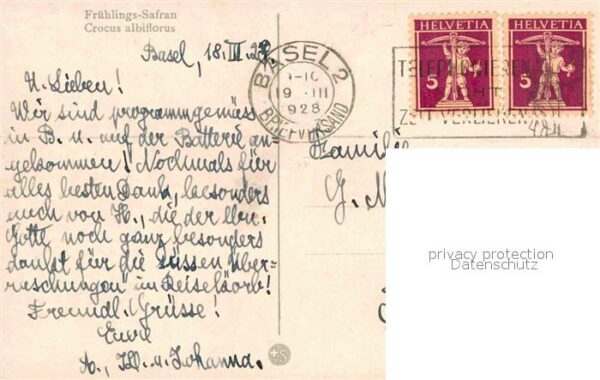 Frühlings-Safran
Crocus albiflorus
Basel, 18. III. 28.
M. Lieben!
Wir sind programmgemäss
in B. u. auf der Batterie an-
gekommen! Nochmals für
alles besten Dank, besonders
auch von H., die der
Gotte noch ganz besonders
dankt für die süssen Über-
raschungen im Reisekorb!
Freundl. Grüsse!
Eure
A., u. Johanna.
BASEL 2
19. III
1928
BRIEFVERSAND
HELVETIA
5
HELVETIA
5
ZEIT VERLIEREN
Familie
G.
privacy protection
Datenschutz
+S